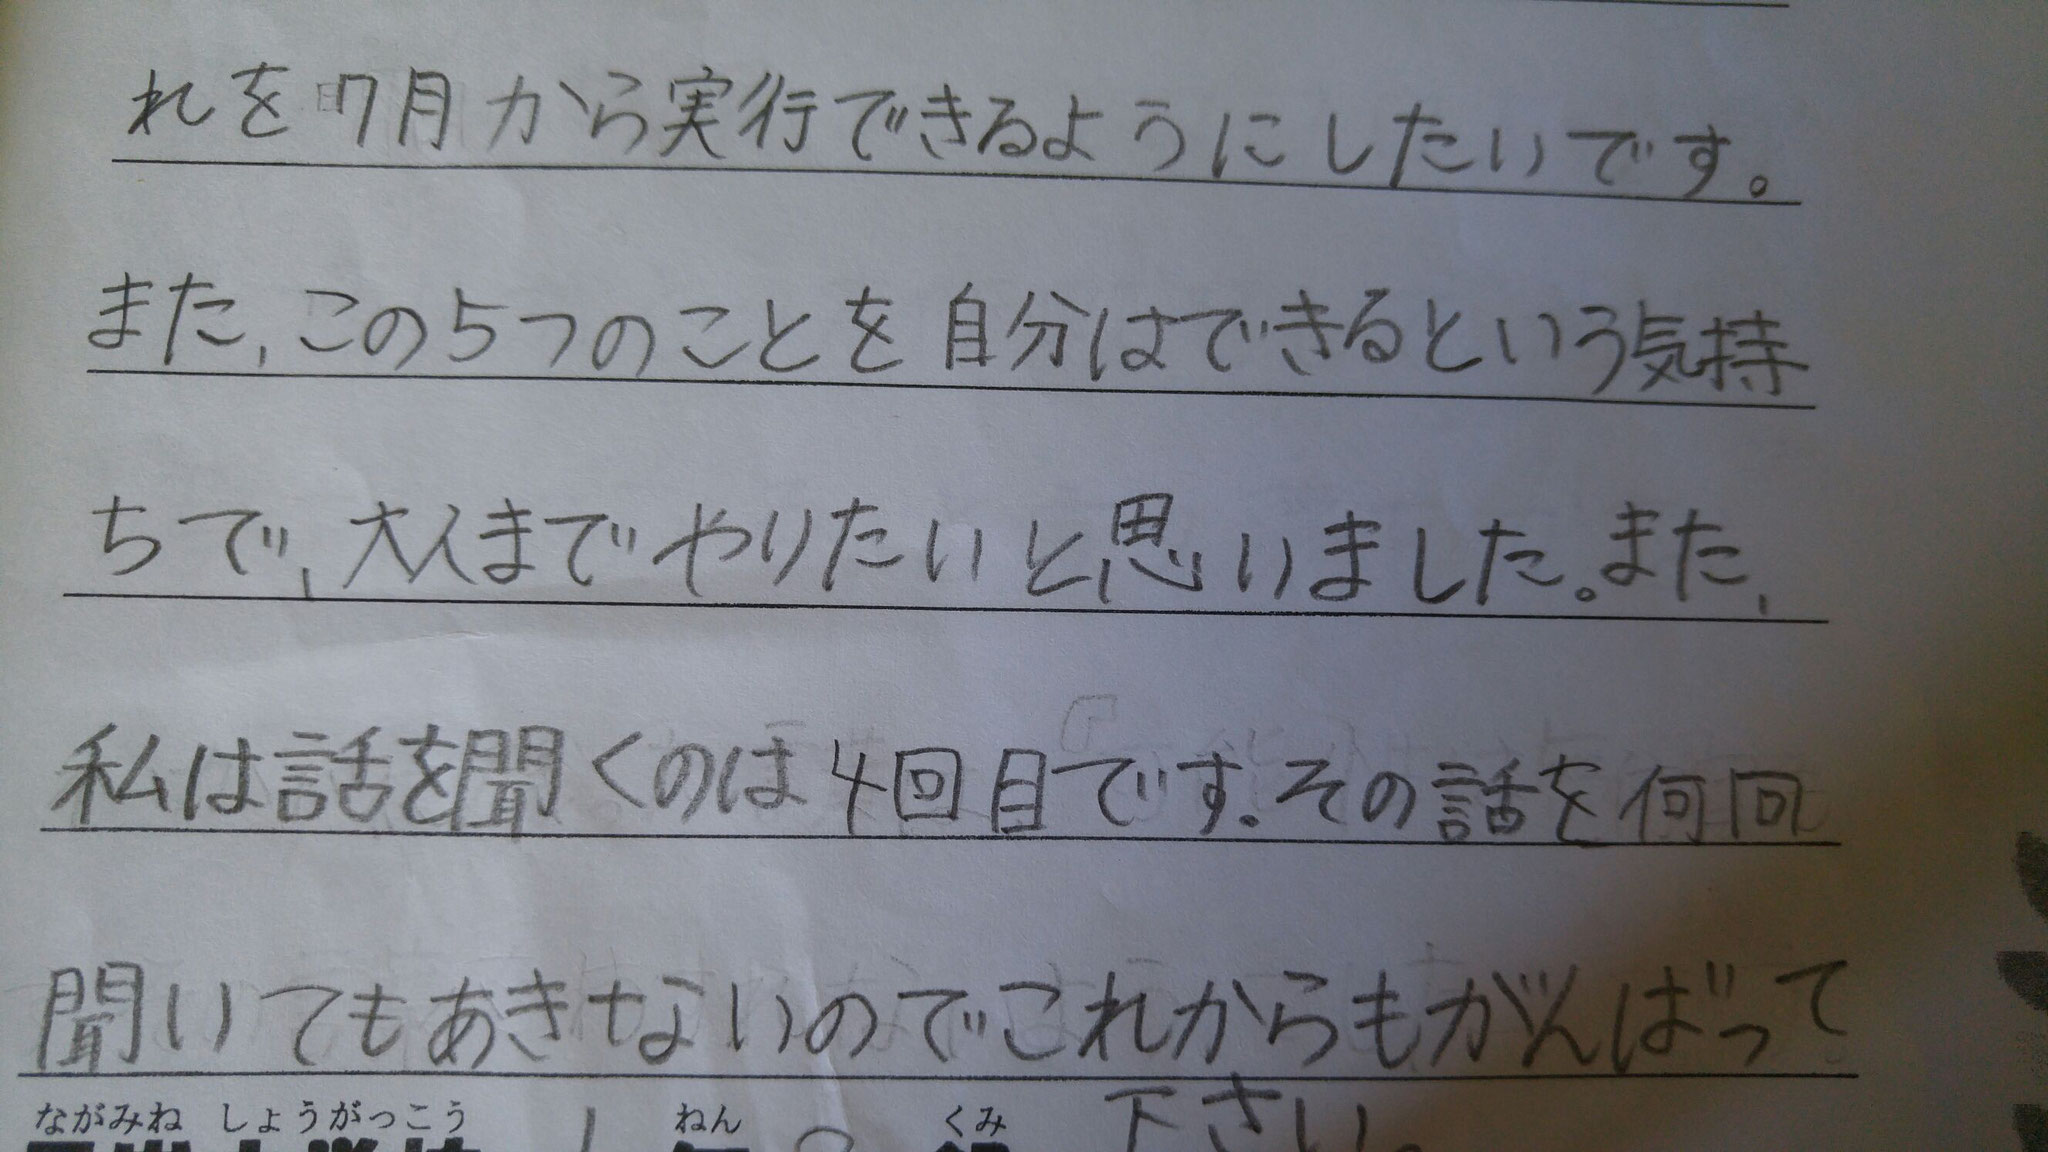 れを7月から実行できるようにしたいです。
また,この5つのことを自分はできるという気持
ちで,大人までやりたいと思いました。また,
私は話を聞くのは4回目です。その話を何回
聞いてもあきないのでこれからもがんばって
下さい。
ながみね しょうがっこう ねん くみ